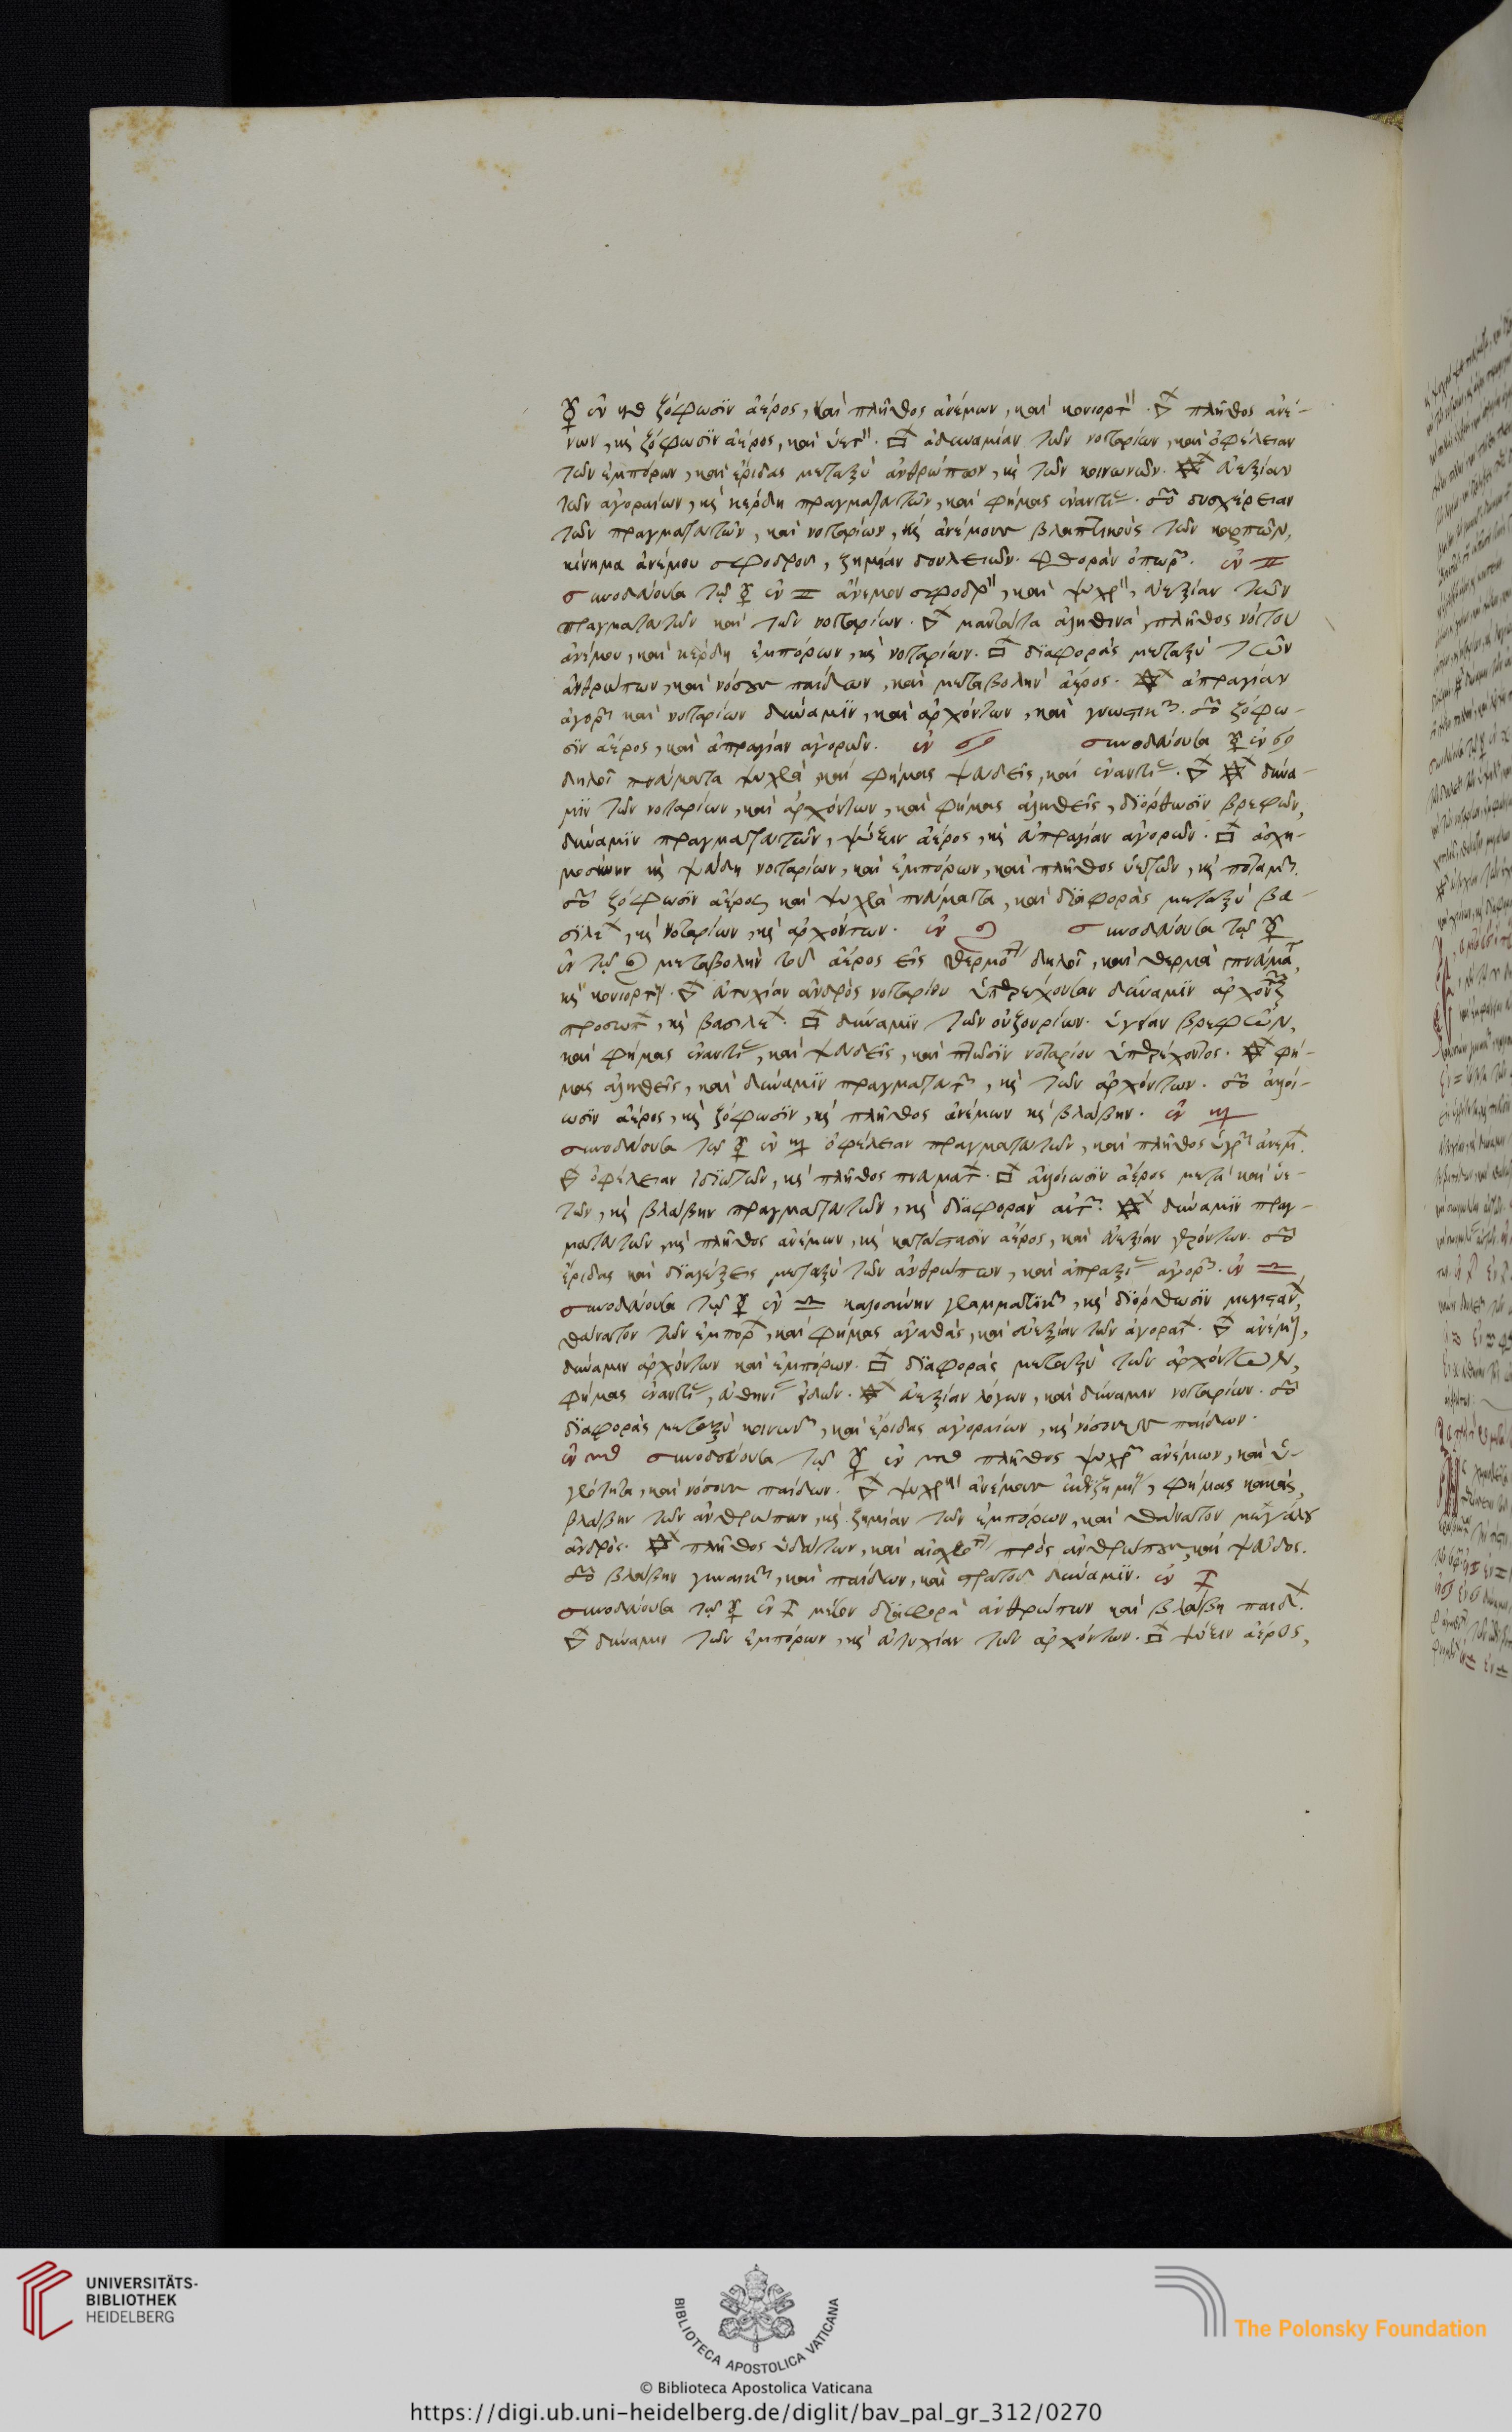 ☿ ἐν ♉ ζόφωσιν ἀέρος, καὶ πλῆθος ἀνέμων, καὶ κονιορτ · πλῆθος ἀνέ-
μων, κὶ ζόφωσιν ἀέρος, καὶ ὑετ · □ ἀδυναμίαν τῶν νοταρίων, καὶ ὀφέλειαν
τῶν ἐμπόρων, καὶ ἔριδας μεταξὺ ἀνθρώπων, κὶ τῶν κοινωνῶν. εὐεξίαν
τῶν ἀγοραίων, κὶ κέρδη πραγματευτῶν, καὶ φήμας ἐναντί · δυσχέρειαν
τῶν πραγματευτῶν, καὶ νοταρίων, κὶ ἀνέμους βλαπτικοὺς τῶν καρπῶν,
κίνημα ἀνέμου σφοδροῦ, ζημίαν δουλειῶν. φθορὰν ὀπωρ · ἐν ♊
συνοδεύουσα τῷ ☿ ἐν ♊ ἄνεμον σφοδρ, καὶ ψυχρ, εὐεξίαν τῶν
πραγματευτῶν καὶ τῶν νοταρίων. μαντάτα ἀληθινὰ, πλῆθος νότου
ἀνέμου, καὶ κέρδη ἐμπόρων, κὶ νοταρίων. □ διαφορὰς μεταξὺ τῶν
ἀνθρώπων, καὶ νόσους παίδων, καὶ μεταβολὴν ἀέρος. ἀπραγίαν
ἀγορ καὶ νοταρίων δύναμιν, καὶ ἀρχόντων, καὶ γνωστικ · ζόφω-
σιν ἀέρος, καὶ ἀπραγίαν ἀγορῶν. ἐν ♋ συνοδεύουσα ☿ ἐν ♋
δηλοῖ πνεύματα ψυχρὰ, καὶ φήμας ψευδεῖς, καὶ ἐναντί · δύνα-
μιν τῶν νοταρίων, καὶ ἀρχόντων, καὶ φήμας ἀληθεῖς, διόρθωσιν βρεφῶν,
δύναμιν πραγματευτῶν, ψύξιν ἀέρος, κὶ ἀπραγίαν ἀγορῶν. □ ἀσχη-
μοσύνην κὶ ψεύδη νοταρίων, καὶ ἐμπόρων, καὶ πλῆθος ὑετῶν, κὶ ποταμ.
ζόφωσιν ἀέρος καὶ ψυχρὰ πνεύματα, καὶ διαφορὰς μεταξὺ βα-
σιλε, κὶ νοταρίων, κὶ ἀρχόντων. ἐν ♌ συνοδεύουσα τῷ ☿
ἐν τῷ ♌ μεταβολὴν τοῦ ἀέρος εἰς θερμό δηλοῖ, καὶ θερμὰ πνεύμα,
κὶ κονιορτ · ἀτυχίαν ἀνδρὸς νοταρίου ὑπερέχουσαν δύναμιν ἀρχοντ
προσωπ, κὶ βασιλε · □ δύναμιν τῶν οὐζουρίων. ὑγείαν βρεφῶν,
καὶ φήμας ἐναντί, καὶ ψευδεῖς, καὶ πτῶσιν νοταρίου ὑπερέχοντος. φή-
μας ἀληθεῖς, καὶ δύναμιν πραγματευτ, κὶ τῶν ἀρχόντων. ἀλλοί-
ωσιν ἀέρος, κὶ ζόφωσιν, κὶ πλῆθος ἀνέμων κὶ βλάβην. ἐν ♍
συνοδεύουσα τῷ ☿ ἐν ♍ ὀφέλειαν πραγματευτῶν, καὶ πλῆθος ὑγρ ἀνεμ.
ὀφέλειαν ἰδιωτῶν, κὶ πλῆθος πνευματ. □ ἀλλοίωσιν ἀέρος μετὰ καὶ ὑε-
τῶν, κὶ βλάβην πραγματευτῶν, κὶ διαφορὰν αὐτ · δύναμιν πραγ-
ματευτῶν, κὶ πλῆθος ἀνέμων, κὶ κατάστασιν ἀέρος, καὶ εὐεξίαν γερόντων.
ἔριδας καὶ διαλέξεις μεταξὺ τῶν ἀνθρώπων, καὶ ἀπραξί ἀγορ. ἐν ♎
συνοδεύουσα τῷ ☿ ἐν ♎ καλοσύνην γραμματικ, κὶ διόρθωσιν μεγισταν,
θάνατον τῶν ἐμπορ, καὶ φήμας ἀγαθὰς, καὶ εὐεξίαν τῶν ἀγορα. ἀνέμ,
δύναμιν ἀρχόντων καὶ ἐμπόρων. □ διαφορὰς μεταξὺ τῶν ἀρχόντων,
φήμας ἐναντί, εὐθηνί εἰδῶν. εὐεξίαν λόγων, καὶ δύναμιν νοταρίων.
διαφορὰς μεταξὺ κοινων, καὶ ἔριδας ἀγοραίων, κὶ νόσους παίδων.
ἐν ♏ συνοδεύουσα τῷ ☿ ἐν ♏ πλῆθος ψυχρ ἀνέμων, καὶ ὑ-
γρότητα, καὶ νόσους παίδων. ψυχρ ἀνέμους, φήμας κακάς,
βλάβην τῶν ἀνθρώπων, κὶ ζημίαν τῶν ἐμπόρων, καὶ θάνατον μεγάλου
ἀνδρός. πλῆθος ὑδάτων, καὶ αἰσχρό πρὸς ἀνθρώπους, καὶ ψεῦδος.
βλάβην γυναικ, καὶ παίδων, καὶ στρατοῦ δύναμιν. ἐν ♐
συνοδεύουσα τῷ ☿ ἐν ♐ μεῖζον διαφορὰ ἀνθρώπων καὶ βλάβη παιδ.
δύναμιν τῶν ἐμπόρων, κὶ ἀτυχίαν τῶν ἀρχόντων. □ ψύξιν ἀέρος,
UNIVERSITÄTS-
BIBLIOTHEK
HEIDELBERG
BIBLIOTECA APOSTOLICA VATICANA
The Polonsky Foundation
© Biblioteca Apostolica Vaticana
https://digi.ub.uni-heidelberg.de/diglit/bav_pal_gr_312/0270